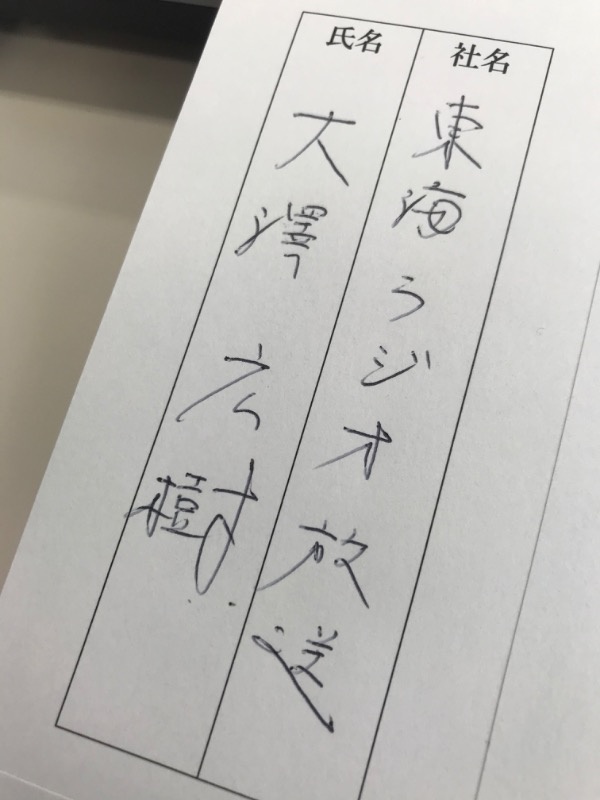 社名
東海ラジオ放送
氏名
大澤広樹